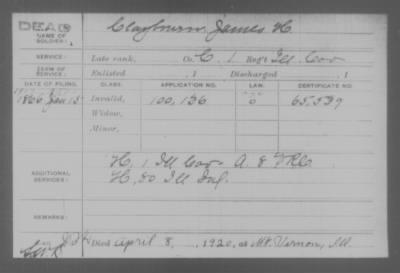 DEAD
NAME OF SOLDIER:
Claybourn James H.
SERVICE:
Late rank, Co. C. 1 Reg't Ill Cav
TERM OF SERVICE:
Enlisted , 1 Discharged , 1
DATE OF FILING. CLASS. APPLICATION NO. LAW. CERTIFICATE NO.
1866 Jan 13 Invalid, 100,136 O 65,539
Widow,
Minor,
ADDITIONAL SERVICES:
H. 1 Ill Cav. A. 8 VRC
H. 80 Ill Inf.
REMARKS:
Died April 8, 1920, at Mt. Vernon, Ill.